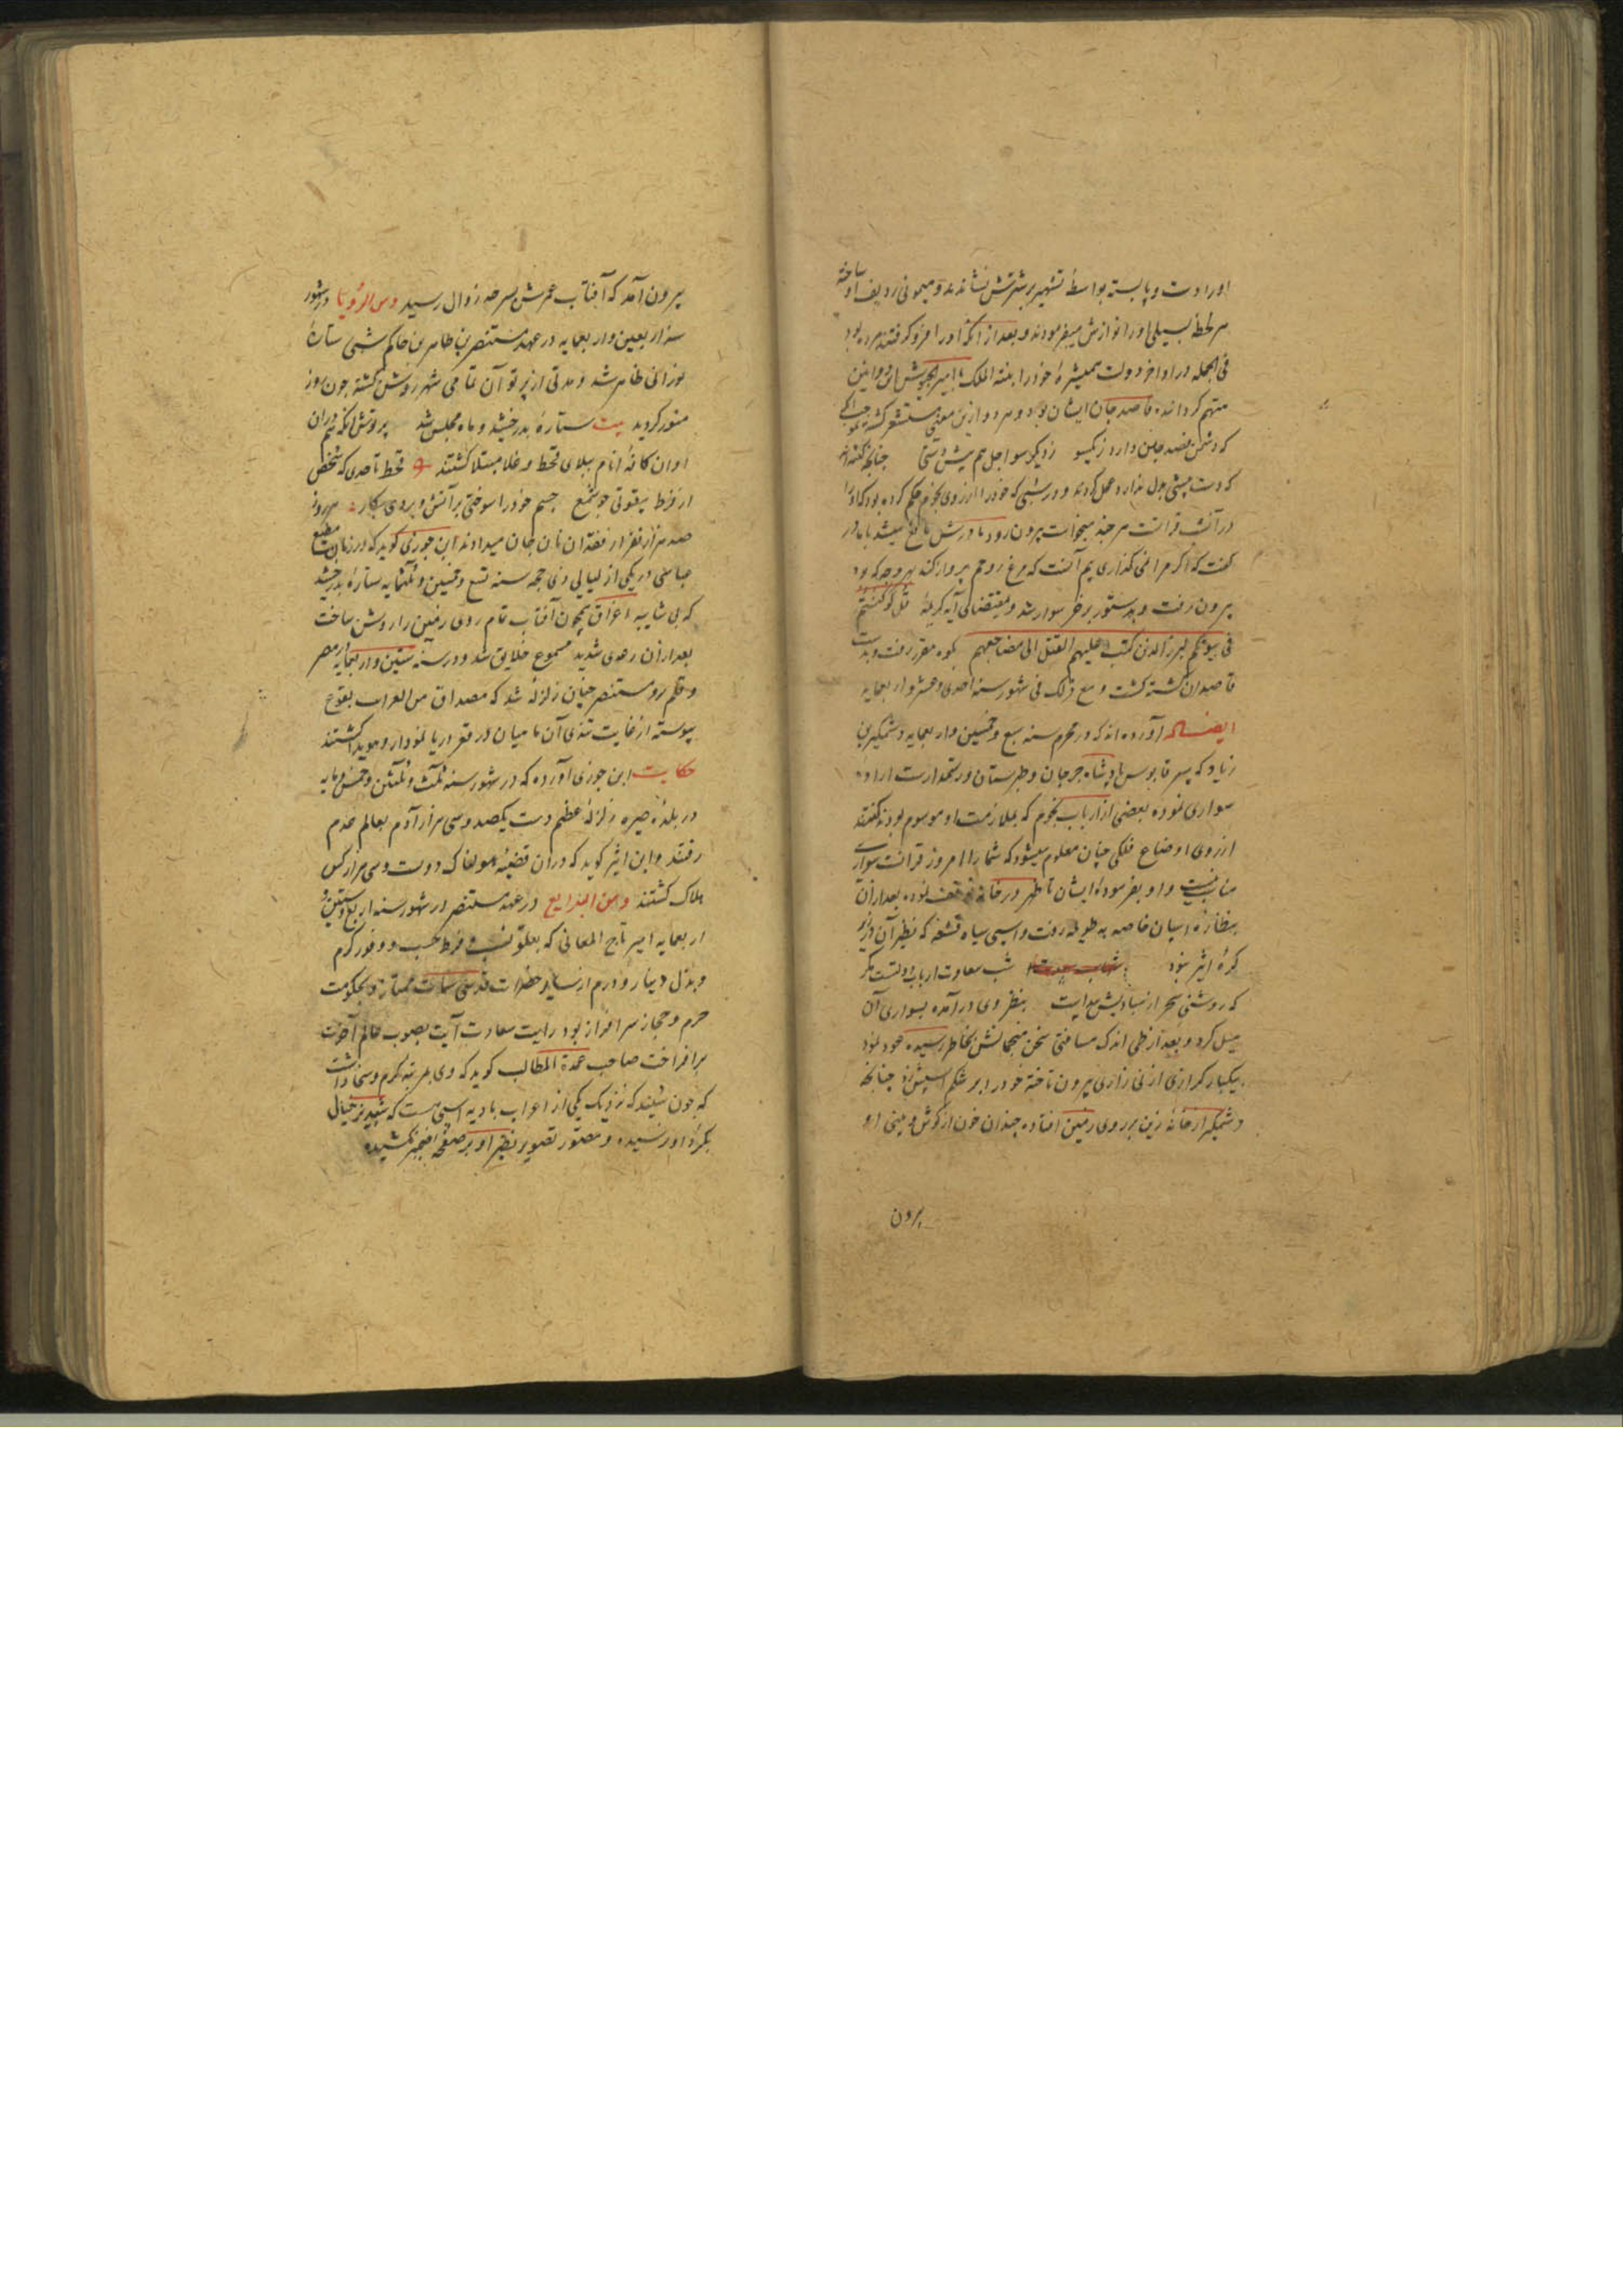 اورا دست و پا بسته بواسطهٔ تشهیر بر شترش نشاندند و میمونی ردیف او ساخته
هر لحظه بسیلی اورا نوازش میفرمودند و بعد از آنکه اورا فرو گرفتند مرده بود
فی الجمله در اواخر دولت همشیرهٔ خود را ستة الملک با امیر الجیوش
متهم گردانیده قاصد جان ایشان بود و هر دو ازین معنی مستشعر گشته
که دشمن قصد جان دارد زیکسو زدیگر سو اجل هم پیش دستی چنانچه گفته‌اند
که دست پیشی بدل ندارد عمل کردند و در شبی که خود را از روی نجوم حکم کرده بود که اورا
در آن شب قرانست هر چند میخواست بیرون رود مادرش مانع میشد با مادر
گفت که اگر مرا نمی گذاری بیم آنست که مرغ روحم پرواز کند بهر وجه که بود
بیرون رفت و بدستور بر خر سوار شد و بمقتضای آیه کریمهٔ قل لو کنتم
فی بیوتکم لبرز الذین کتب علیهم القتل الی مضاجعهم بکوه مقرر رفت و بدست
قاصدان کشته گشت و مع ذلک فی شهور سنه احدی و عشر و اربعمایه
ایضاً آورده‌اند که در محرم سنه سبع و خمسین و اربعمایه وشمگیر بن
زیاد که پسر قابوس پادشاه جرجان و طبرستان و رستمدارست اراده
سواری نموده بعضی از ارباب نجوم که بملازمت او موسوم بودند گفتند
از روی اوضاع فلکی چنان معلوم میشود که شما را امروز قرانست سواری
مناسب نیست و او بفرمودهٔ ایشان تا ظهر در خانه توقف نموده بعد از آن
بنظارهٔ اسبان خاصه به طویله رفت و اسبی سیاه قشقه که نظیر آن در زیر
کرهٔ اثیر نبود شب سعادت ارباب دولتست مگر
که روشنی سحر از سیادیش پیداست بنظر وی در آمده بسواری آن
میل کرد و بعد از طی اندک مسافتی سخن منجمانش بخاطر رسیده عود نمود
بیکبار گرازی از نی زاری بیرون تاخته خود را بر شکم اسپش زد چنانکه
وشمگیر از خانهٔ زین بر روی زمین افتاده چندان خون از گوش و بینی او
بیرون
بیرون آمد که آفتاب عمرش بسرحد زوال رسید ومن الرؤیا در شهور
سنه اربعین و اربعمایه در عهد مستنصر بن ظاهر بن حاکم شبی ستارهٔ
نورانی ظاهر شد و مدتی از پرتو آن تمامی شهر روشن گشته چون روز
منور گردید بیت ستارهٔ بدرخشید و ماه مجلس شد پرتوش آنکه هم در آن
اوان کافهٔ انام ببلای قحط و غلا مبتلا گشتند قحط تا حدی که شخص
از فرط بیقوتی چو شمع جسم خود را سوختی بر آتش و بردی بکار هر روز
صد هزار نفر از فقدان نان جان میدادند ابن جوزی گوید که در زمان مطیع
عباسی در یکی از لیالی ذی حجه سنه تسع و خمسین و ثلثمایه ستارهٔ بدرخشید
که بی شایبه اغراق همچون آفتاب تمام روی زمین را روشن ساخت
بعد از آن رعدی شدید مسموع خلایق شد و در سنه ستین و اربعمایه از مصر
و قلمرو مستنصر چنان زلزلهٔ شد که مصداق من العراب بقوع
پیوسته از غایت تندی آن ماهیان در قعر دریا نمودار و هویدا گشتند
حکایت ابن جوزی آورده که در شهور سنه ثلث و ثلثین و خمس مایه
در بلدهٔ حیره زلزلهٔ عظیم دست یکصد و سی هزار آدم بعالم عدم
رفتند و ابن اثیر گوید که در آن قضیهٔ هولناک دویست و سی هزار کس
هلاک گشتند ومن البدایع در عهد مستنصر در شهور سنه اربع و ستین و
اربعمایه امیر تاج المعانی که بعلو نسب و فرط حسب و وفور کرم
و بذل دینار و درم از سایر حضرات قدسی سمات ممتاز و بحکومت
حرم و حجاز سرافراز بود رایت سعادت آیت بصوب عالم آخرت
برافراخت صاحب عمدة المطالب گوید که وی بمرتبه کرم و سخا داشت
که چون شنید که نزدیک یکی از اعراب بادیه اسبی هست که شبدیز خیال
بگرد او نرسیده و مصور تصویر نظیر او بر صفحه ضمیر نکشیده